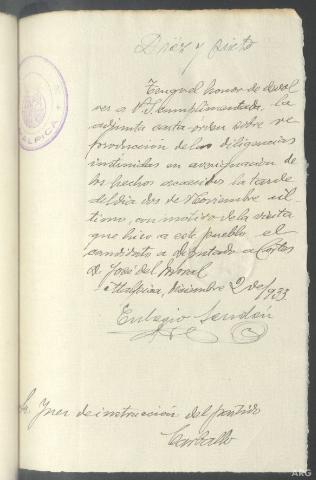 Diez y siete
Tengo el honor de devol
ver a V.S. cumplimentada la
adjunta carta-órden sobre re
producción de las diligencias
instruidas en averiguación de
los hechos ocurridos la tarde
del día dos de Noviembre úl-
timo, con motivo de la visita
que hizo a este pueblo, el
candidato a Diputado a Cortes
D. José del Moral
Malpica, Diciembre 2 de 1933
Eulogio
Sr. Juez de instrucción del partido
Carballo
MALPICA
ARG